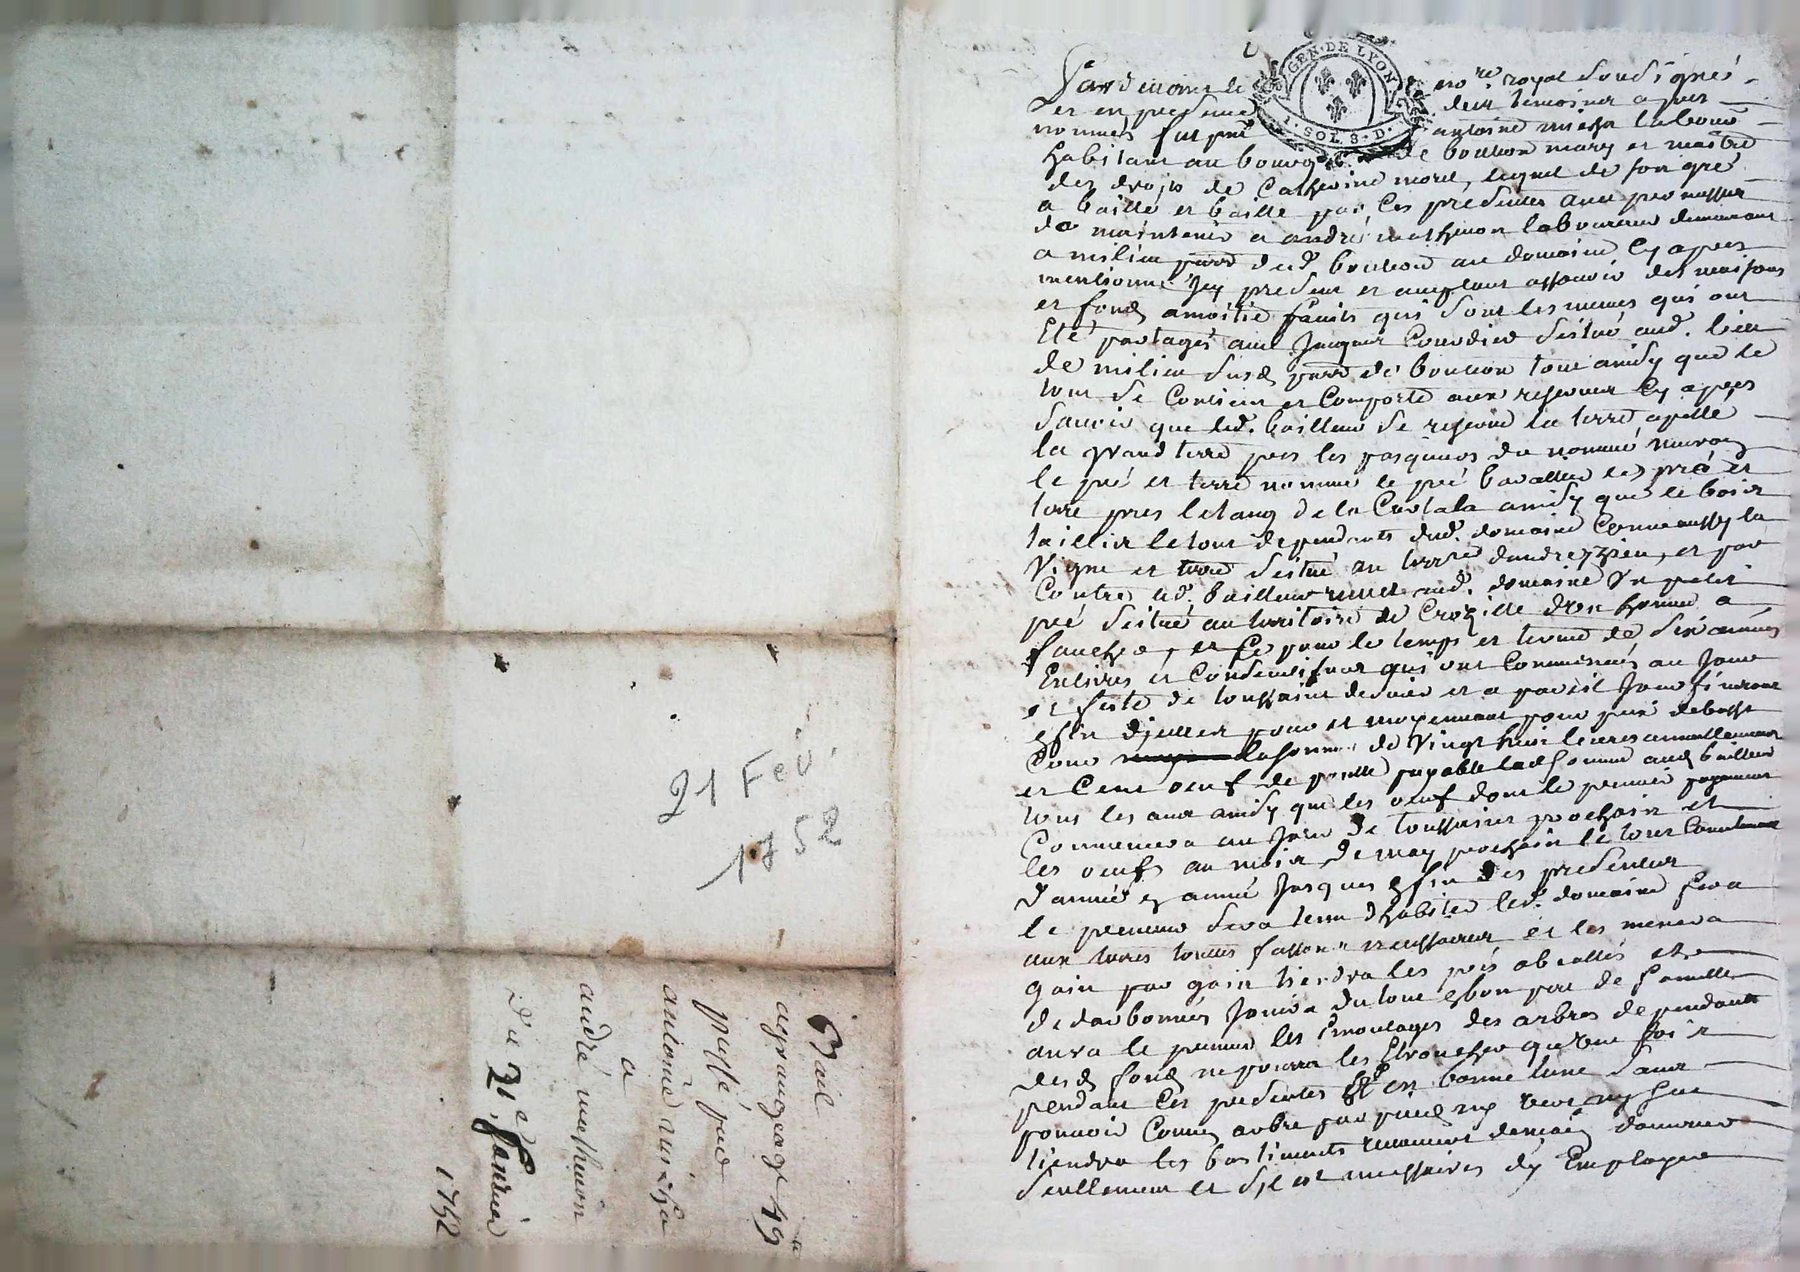 21 Fev.
1752
Bail
a grangeage 49
passé par
antoine
a
andré mathevon
Du 21e fevrier
1752
GEN·DE LYON
1·SOL·8·D·
Par devant le no.re royal soussigné
et en presence deux temoins apres
nommés fut pnt antoine labour
habitant au bourg de bouteon mary et maitre
des droits de Catherine morel, lequel de son gré
a baillé et baille par Ces presentes avec promesse
de maintenir a andré mathevon laboureur demeurant
a milieu parr dud. bouteon au domaine Cy apres
mentionné Icy present et acceptant assavoir des maisons
et fonds a moitié fruits qui sont les memes qui ont
Eté partagés avec Jacques situé aud. lieu
de milieu susd. parr de bouteon tout ainsy que le
tout se Contient et Comporte avec reserves Cy apres
Sauoir que led. bailleur se reserve la terre apellé
la grand terre pres les pasquiers du nommé
le pré et terre nommé le pré les pré et
terre pres letang de la ainsy que le bois
taillis le tout dependants dud. domaine Comme aussy la
Vigne et terre situé au terr.re dandrezieu, et par
Contre led. bailleur remet aud. domaine Un petit
pré situé au territoire de Crozille d'un homme a
faucher, et Ce pour le temps et terme de six années
Entieres et Consecutives qui ont Commencés au Jour
et feste de toussaint dernier et a pareil Jour finiront
pour et moyennant pour prix de basse
Cour la somme de Vingt huit livres annuellement
et Cent oeuf de poulle payable lad. somme aud. bailleur
tous les ans ainsy que les oeuf dont le premier payement
Commencera au Jour de toussaint prochain et
les oeufs au mois de may prochain le tout Continuer
d'année en année Jusques a fin des presentes
le preneur sera tenu d'habiter led. domaine fera
aux terres toutes fassons necessaires et les menera
gain par gain tiendra les prés et
Jouira du tout en bon pere de famille
aura le preneur les emoulages des arbres dependants
desd. fonds ne pourra les Ebrancher qu'une fois
pendant Ces presentes et en bonne lune sans
pouvoir Couper arbre par pied ny
tiendra les bastiments
seullement et necessaires dy Employer